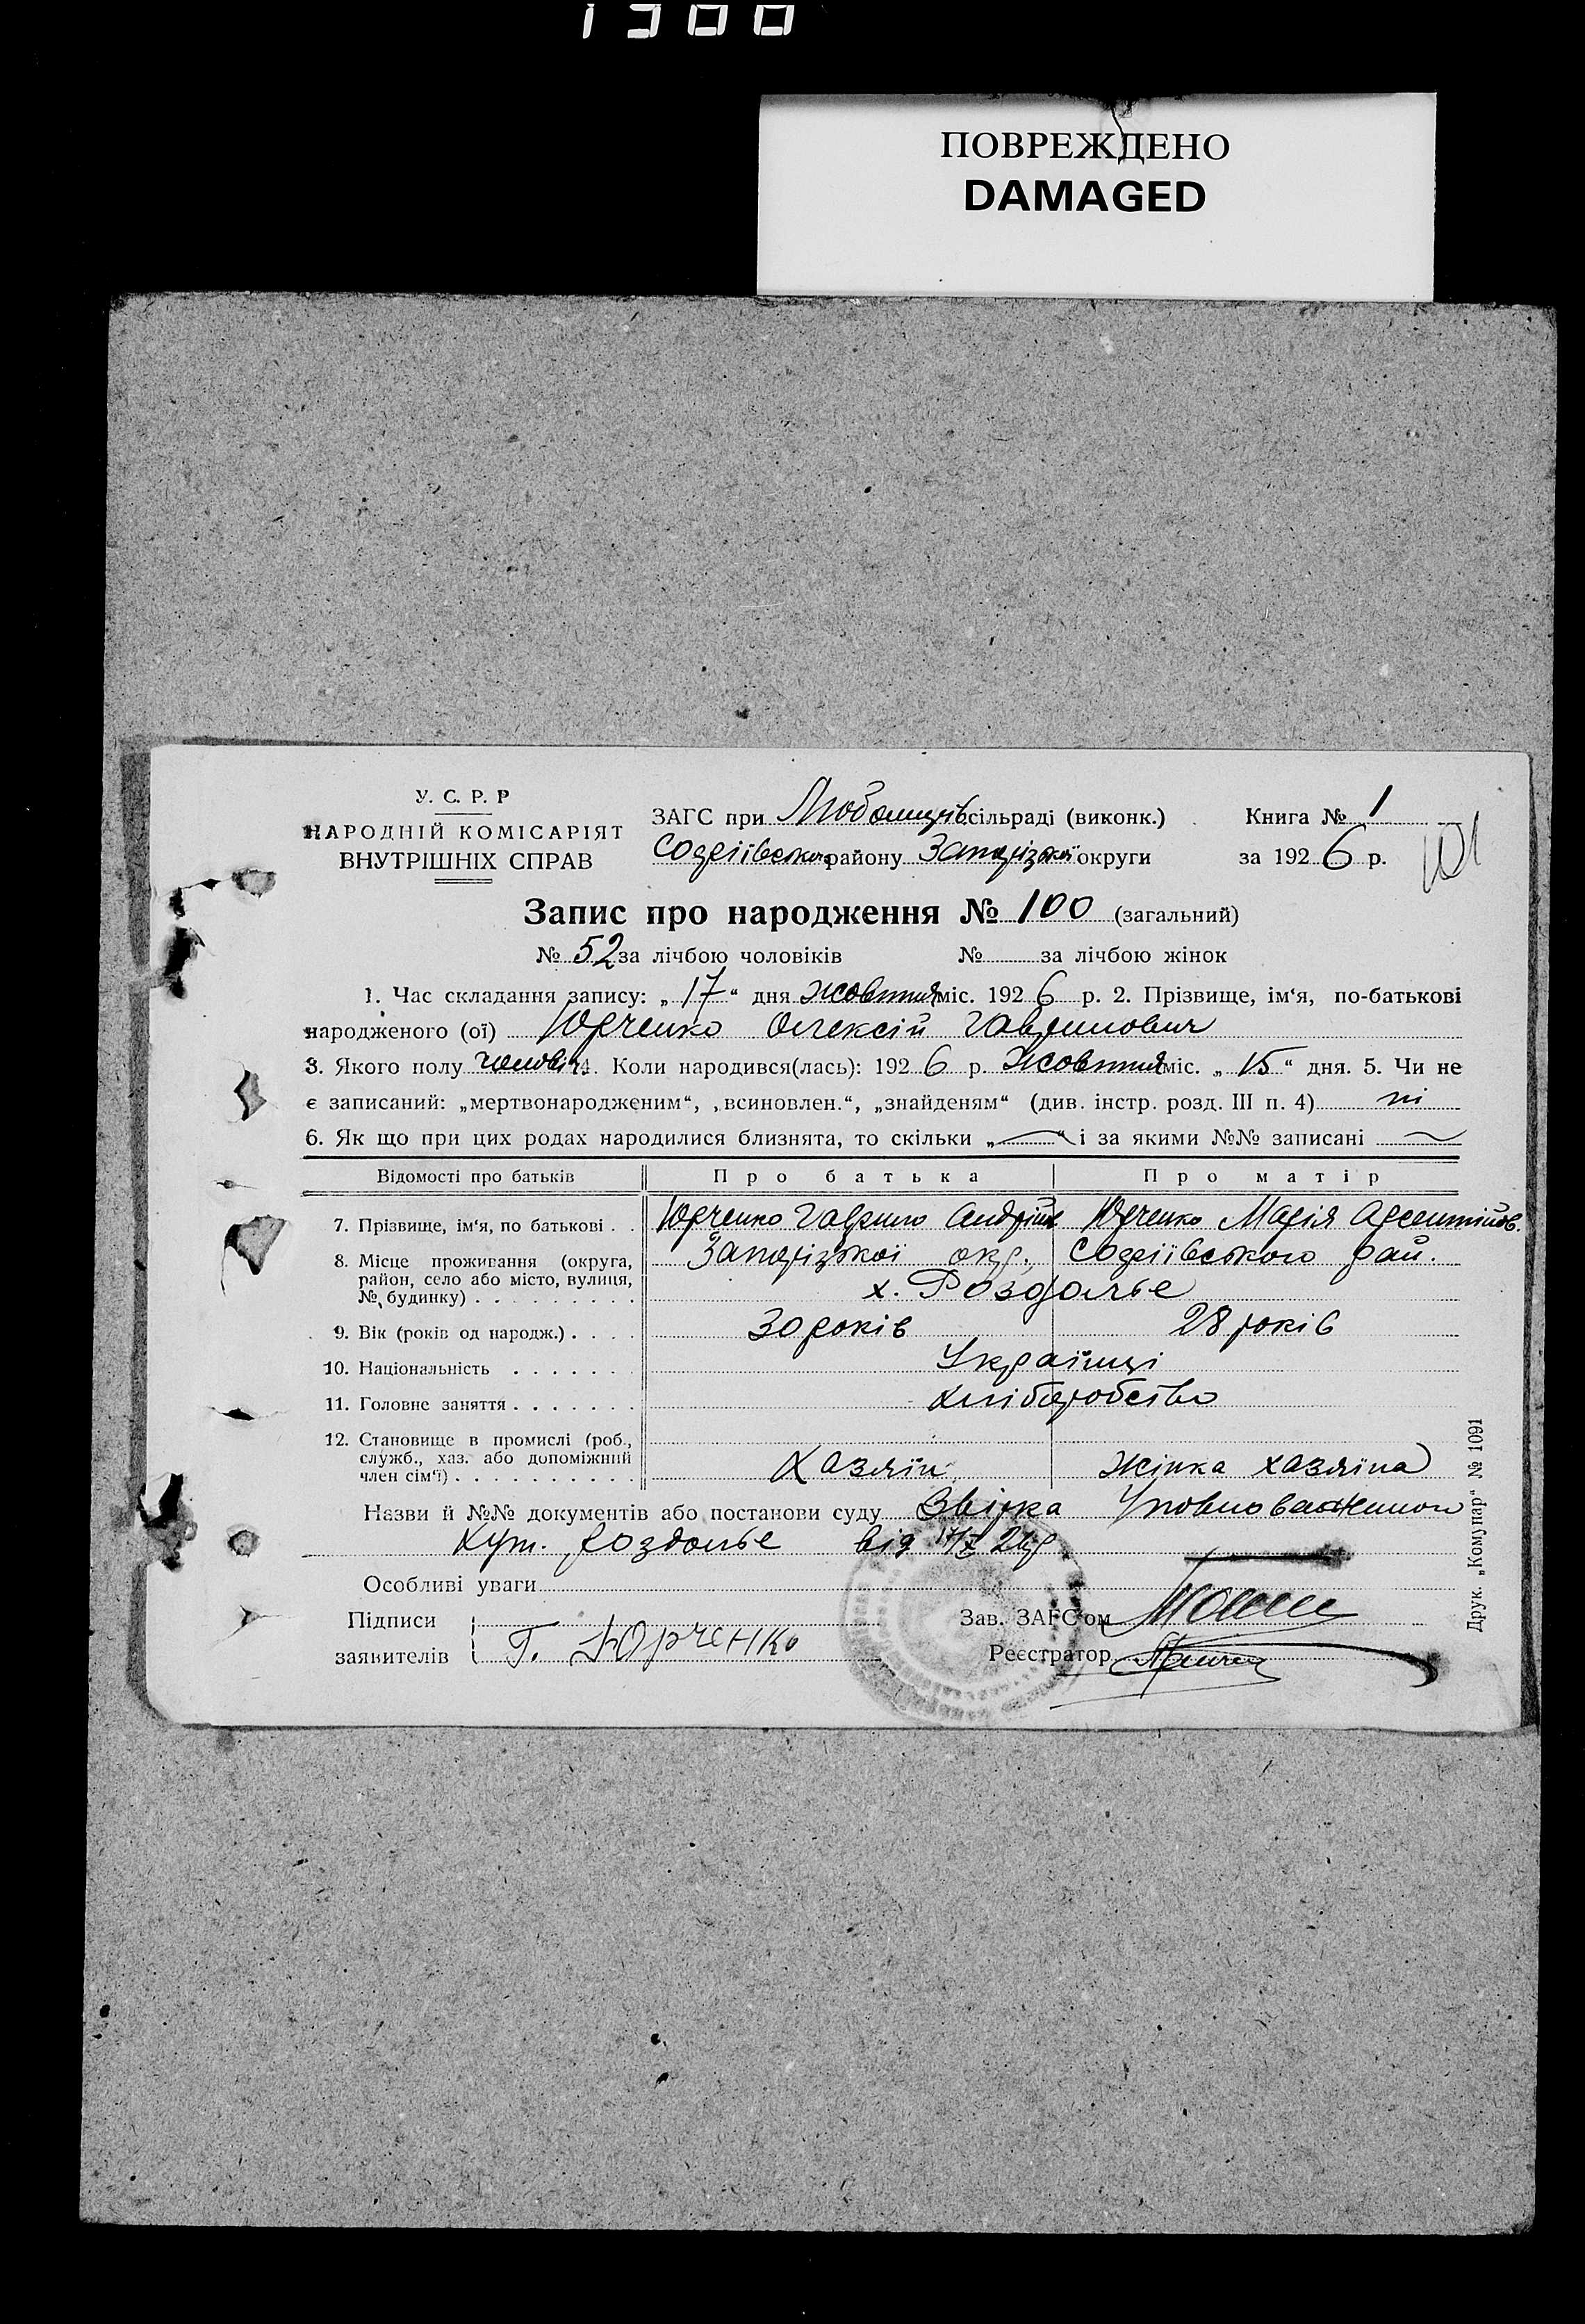 1300
ПОВРЕЖДЕНО
DAMAGED
У. С. Р. Р
НАРОДНІЙ КОМІСАРІЯТ
ВНУТРІШНІХ СПРАВ
ЗАГС при сільраді (виконк.) Книга № 1
району Запорізької округи за 1926 р.
101
Запис про народження № 100 (загальний)
№ 52 за лічбою чоловіків № за лічбою жінок
1. Час складання запису: „17“ дня жовтня міс. 1926 р. 2. Прізвище, ім‘я, по-батькові
народженого (ої) Юрченко Олексій Гаврилович
3. Якого полу чоловіч. 4. Коли народився(лась): 1926 р. Жовтня міс. „15“ дня. 5. Чи не
є записаний: „мертвонародженим“, „всиновлен.“, „знайденям“ (див. інстр. розд. III п. 4) ні
6. Як що при цих родах народилися близнята, то скільки „—“ і за якими №№ записані —
Відомості про батьків Про батька Про матір
7. Прізвище, ім‘я, по батькові . . Юрченко Гаврило Андрійов Юрченко Марія Арсентійов.
8. Місце проживання (округа, Запорізької окр., рай.
район, село або місто, вулиця,
№ будинку) . . . . . . . . . х. Роздолье
9. Вік (років од народж.) . . . . 30 років 28 років
10. Національність . . . . . . . Українці
11. Головне заняття . . . . . . . хліборобство
12. Становище в промислі (роб.,
служб., хаз. або допоміжний
член сім‘ї) . . . . . . . . . . Хазяїн Жінка хазяїна
Назви й №№ документів або постанови суду Уповноваженого
Хут. Роздолье від 17/X 26р
Особливі уваги
Підписи Зав. ЗАГС‘ом
заявителів Г. Юрченко Реєстратор
Друк. „Комунар“ № 1091